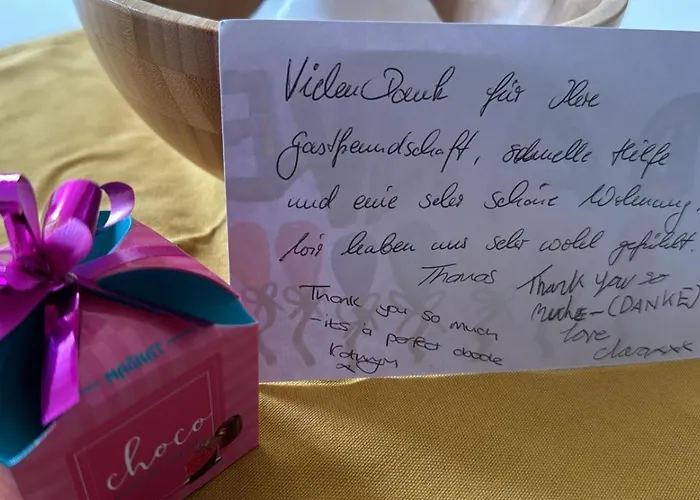 Vielen Dank für Ihre
Gastfreundschaft, schnelle Hilfe
und eine sehr schöne Wohnung.
Wir haben uns sehr wohl gefühlt.
Thomas
Thank you so much
- it's a perfect abode
Kathryn
x
Thank you so
much - (DANKE)
love
xxx
MAGNAT
choco